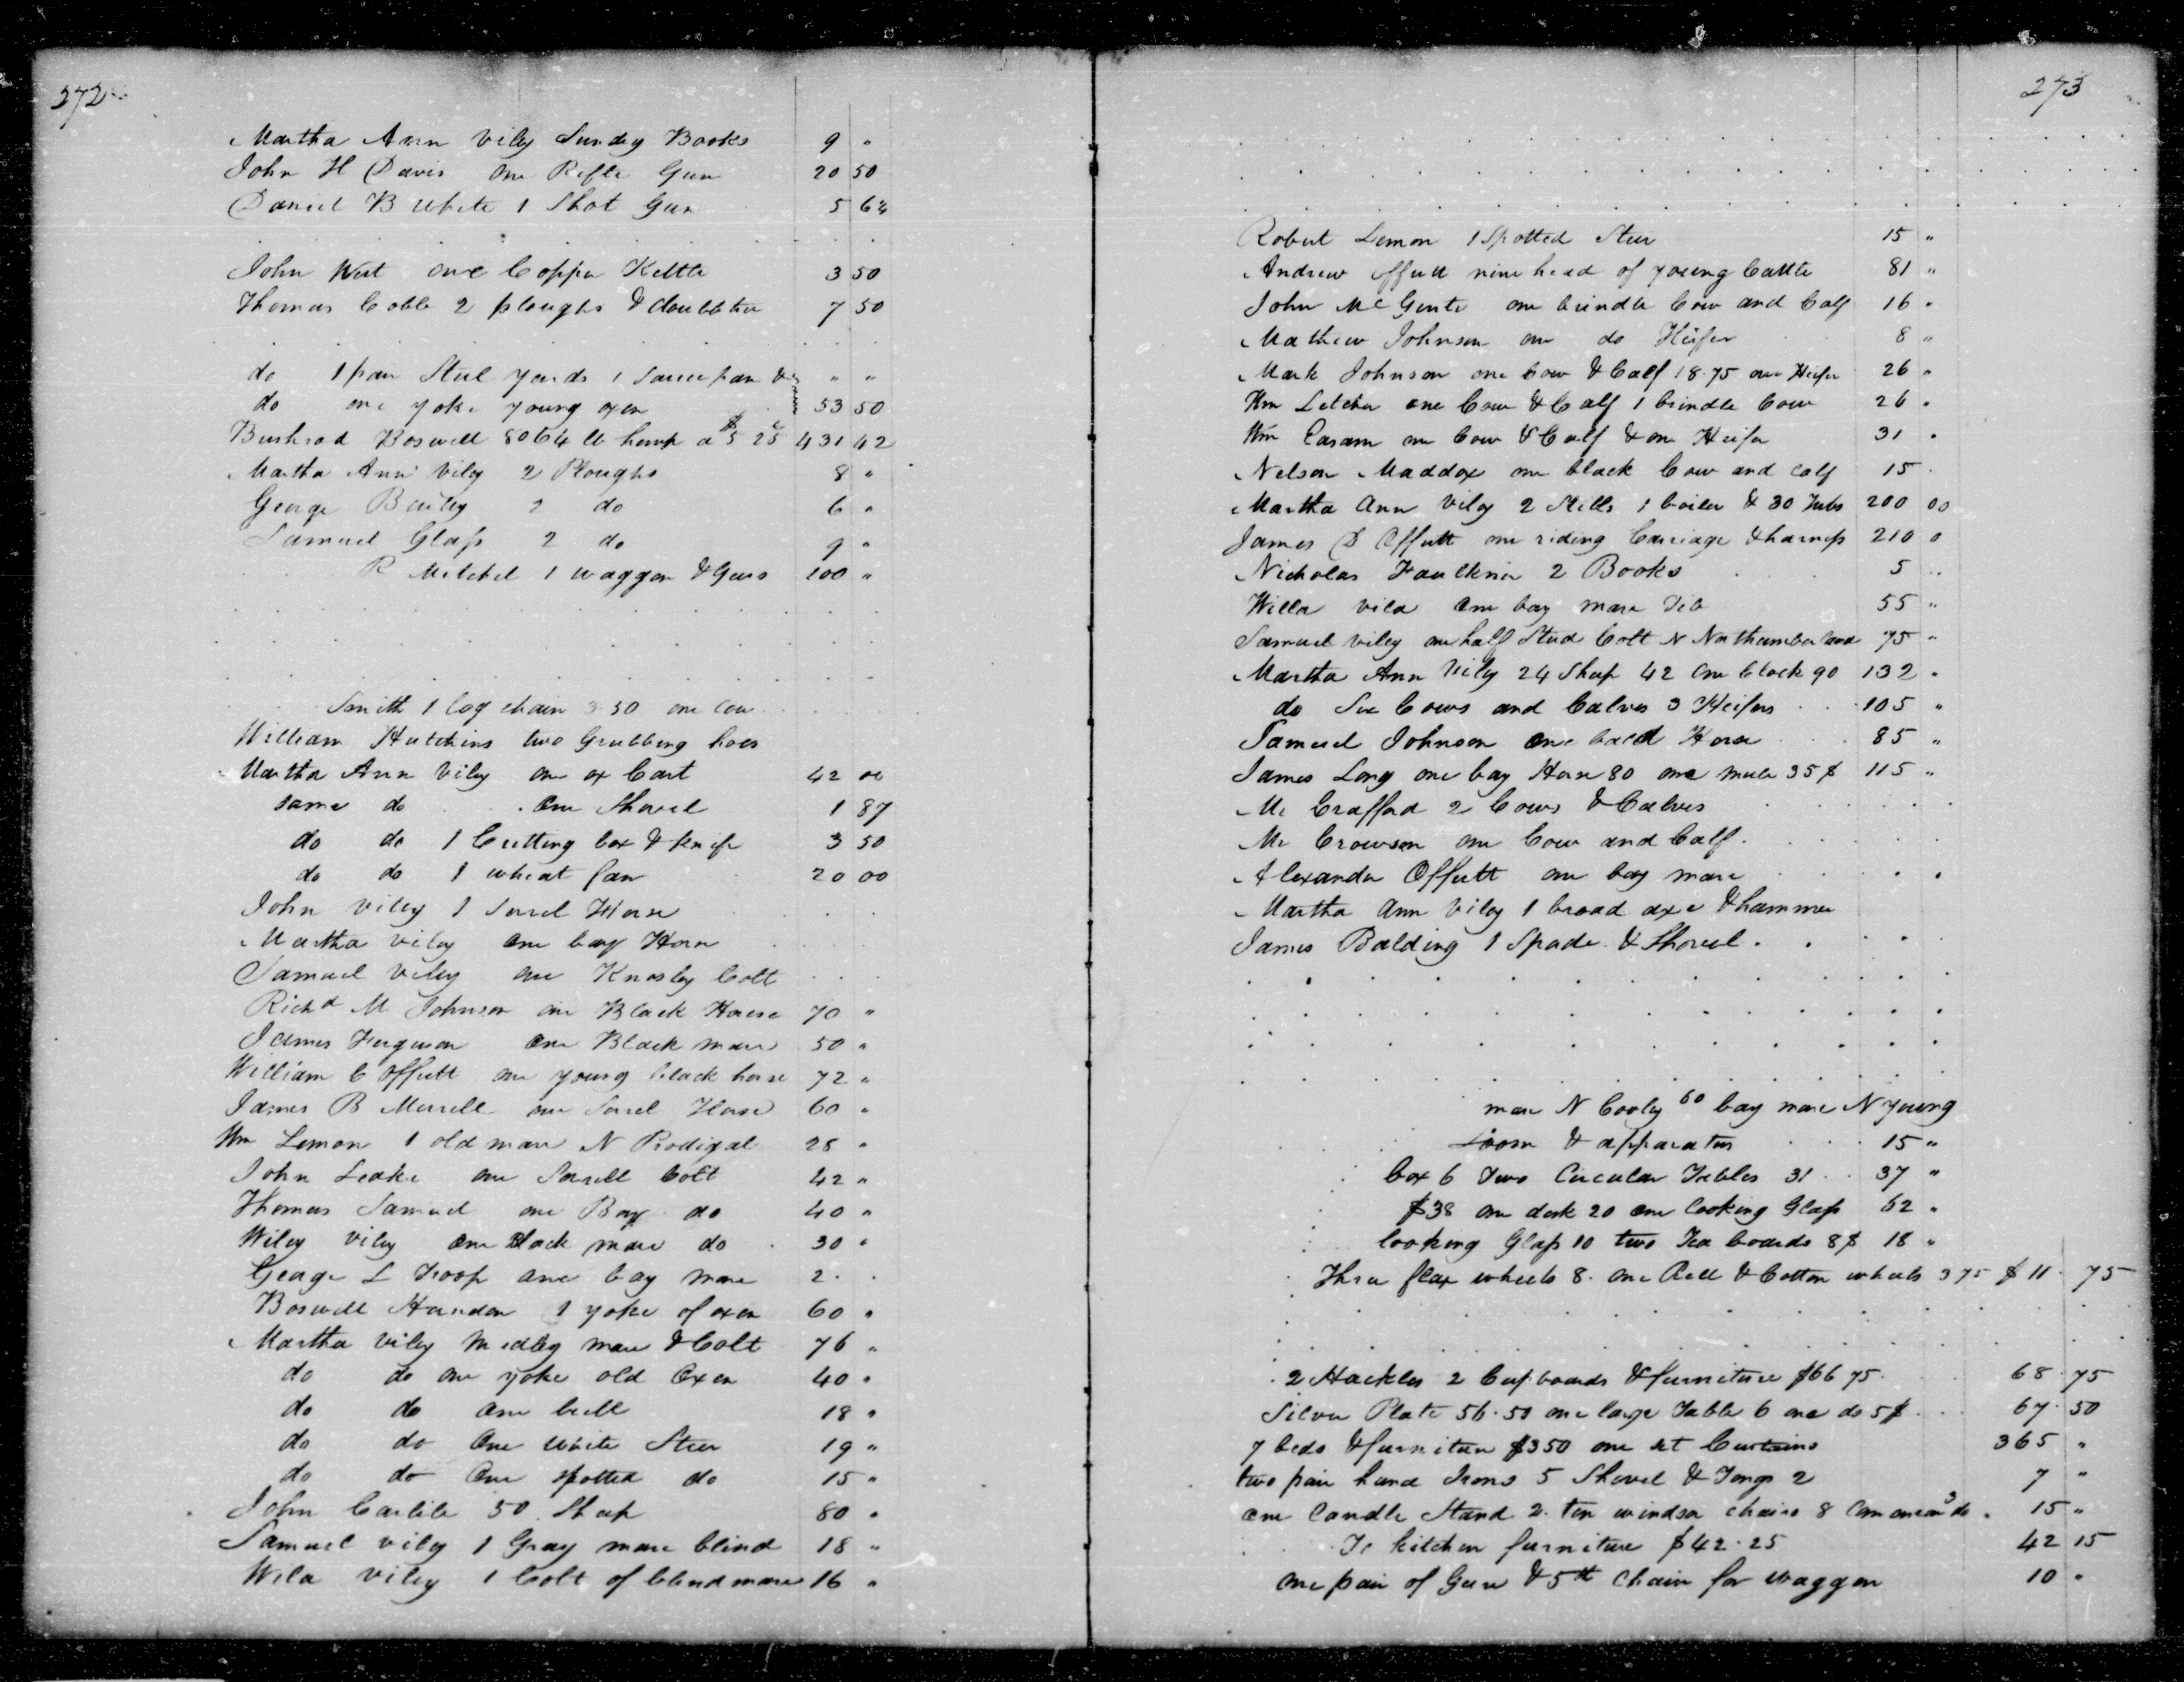 272
Martha Ann Viley Sundry Books 9 "
John H Davis one Rifle Gun 20 50
Daniel B White 1 Shot Gun 5 64
John West one Copper Kettle 3 50
Thomas Coble 2 ploughs & doubletree 7 50
do 1 pair Steel yards 1 Saucepan & " "
do one yoke young oxen 53 50
Bushrod Boswell 8064 lb hemp a $5 25c 431 42
Martha Ann Viley 2 Ploughs 8 "
George Bailey 2 do 6 "
Samuel Glass 2 do 9 "
R Mitchel 1 waggon & Gears 100 "
Smith 1 log chain 3.50 one Cow
William Hutchins two Grubbing hoes
Martha Ann Viley one ox Cart 42 00
same do One Shovel 1 87
do do 1 Cutting box & knife 3 50
do do 1 wheat fan 20 00
John Viley 1 Sorel Horse
Martha Viley one bay Horse
Samuel Viley one Knosley Colt
Richd M Johnson one Black Horse 70 "
James Ferguson One Black mare 50 "
William C Offutt one young black horse 72 "
James B Murell one Sorel Horse 60 "
Wm Lemon 1 old mare N Prodigal 28 "
John Leake one Sorrell Colt 42 "
Thomas Samuel one Bay do 40 "
Wiley Viley one Black mare do 30 "
George L Troop one bay mare 2
Boswell Herndon 1 yoke of oxen 60 "
Martha Viley Medley mare & Colt 76 "
do do one yoke old Oxen 40 "
do do one bull 18 "
do do One White Steer 19 "
do do One spotted do 15 "
John Carlile 50 Sheep 80 "
Samuel Viley 1 Gray mare blind 18 "
Wila Viley 1 Colt of blind mare 16 "
273
Robert Lemon 1 Spotted Steer 15 "
Andrew Offutt nine head of young Cattle 81 "
John McGinte one brindle Cow and Calf 16 "
Mathew Johnson one do Heifer 8 "
Mark Johnson one Cow & Calf 18.75 one Heifer 26 "
Wm Letcher one Cow & Calf 1 brindle Cow 26 "
Wm Easam one Cow & Calf & one Heifer 31 "
Nelson Maddox one black Cow and calf 15
Martha Ann Viley 2 Stills 1 boiler & 30 Tubs 200 00
James D Offutt one riding Carriage & harness 210 0
Nicholas Faulkner 2 Books 5 "
Willa Vila One bay mare Tib 55 "
Samuel Viley one half Stud Colt N Northumberland 75 "
Martha Ann Viley 24 Sheep 42 One Clock 90 132 "
do Six Cows and Calves 3 Heifers 105 "
Samuel Johnson One bald Horse 85 "
James Long one bay Horse 80 one mule 35$ 115 "
Mr Crafford 2 Cows & Calves
Mr Crowson one Cow and Calf
Alexander Offutt one bay mare
Martha Ann Viley 1 broad axe & hammer
James Balding 1 Spade & Shovel
mare N Cooley 60 bay mare N young
Loom & apparatus 15 "
box 6 Two Circular Tables 31 37 "
$38 one desk 20 one looking Glass 62 "
looking Glass 10 two Tea boards 8$ 18 "
Three flax wheels 8. one Reel & Cotton wheels 3 75 $ 11 75
2 Hackles 2 Cupboards & furniture $66 75 68 75
Silver Plate 56.50 one large Table 6 one do 5$ 67 50
7 beds & furniture $350 one set Curtains 365 "
two pair hand Irons 5 Shovel & Tongs 2 7 "
one Candle Stand 2. ten windsor chairs 8 Common 3 do 15 "
To kitchen furniture $42.25 42 15
one pair of Gears & 5th Chain for waggon 10 "